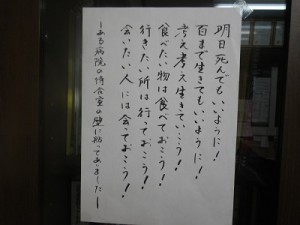 明日死んでもいいように!
百まで生きてもいいように!
考え考え生きていこう!
食べたい物は食べておこう!
行きたい所は行っておこう!
会いたい人には会っておこう!
―ある病院の待合室の壁に貼ってありました―